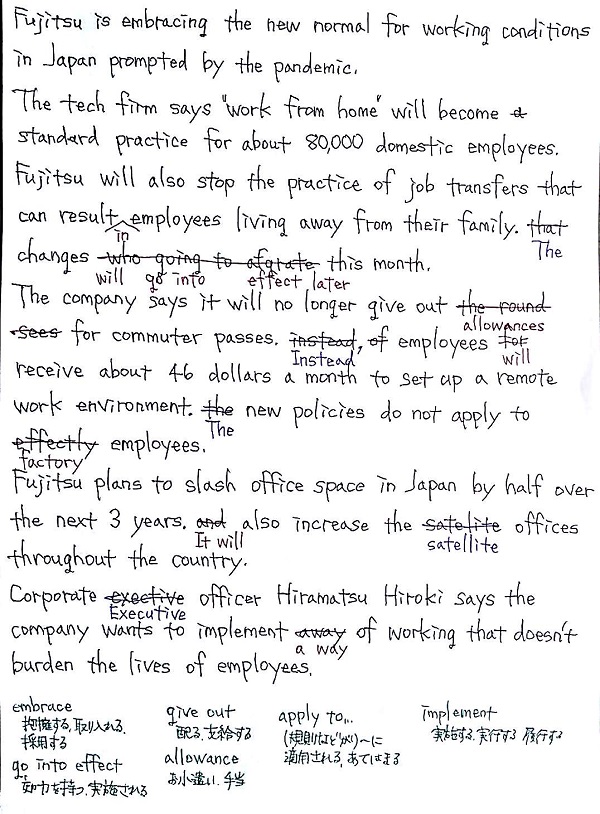 Fujitsu is embracing the new normal for working conditions
in Japan prompted by the pandemic.
The tech firm says "work from home" will become a
standard practice for about 80,000 domestic employees.
Fujitsu will also stop the practice of job transfers that
can result employees living away from their family. that
in
The
changes who going to afgrate this month.
will go into effect later
The company says it will no longer give out the round
allowances
sees for commuter passes. instead, of employees for
Instead
will
receive about 46 dollars a month to set up a remote
work environment. the new policies do not apply to
The
effectly employees.
factory
Fujitsu plans to slash office space in Japan by half over
the next 3 years. and also increase the satelite offices
It will
satellite
throughout the country.
Corporate exective officer Hiramatsu Hiroki says the
Executive
company wants to implement away of working that doesn't
a way
burden the lives of employees.
embrace
抱擁する,取り入れる,
採用する
go into effect
効力を持つ,実施される
give out
配る,支給する
allowance
お小遣い,手当
apply to...
(規則などが)~に
適用される,あてはまる
implement
実施する,実行する 履行する